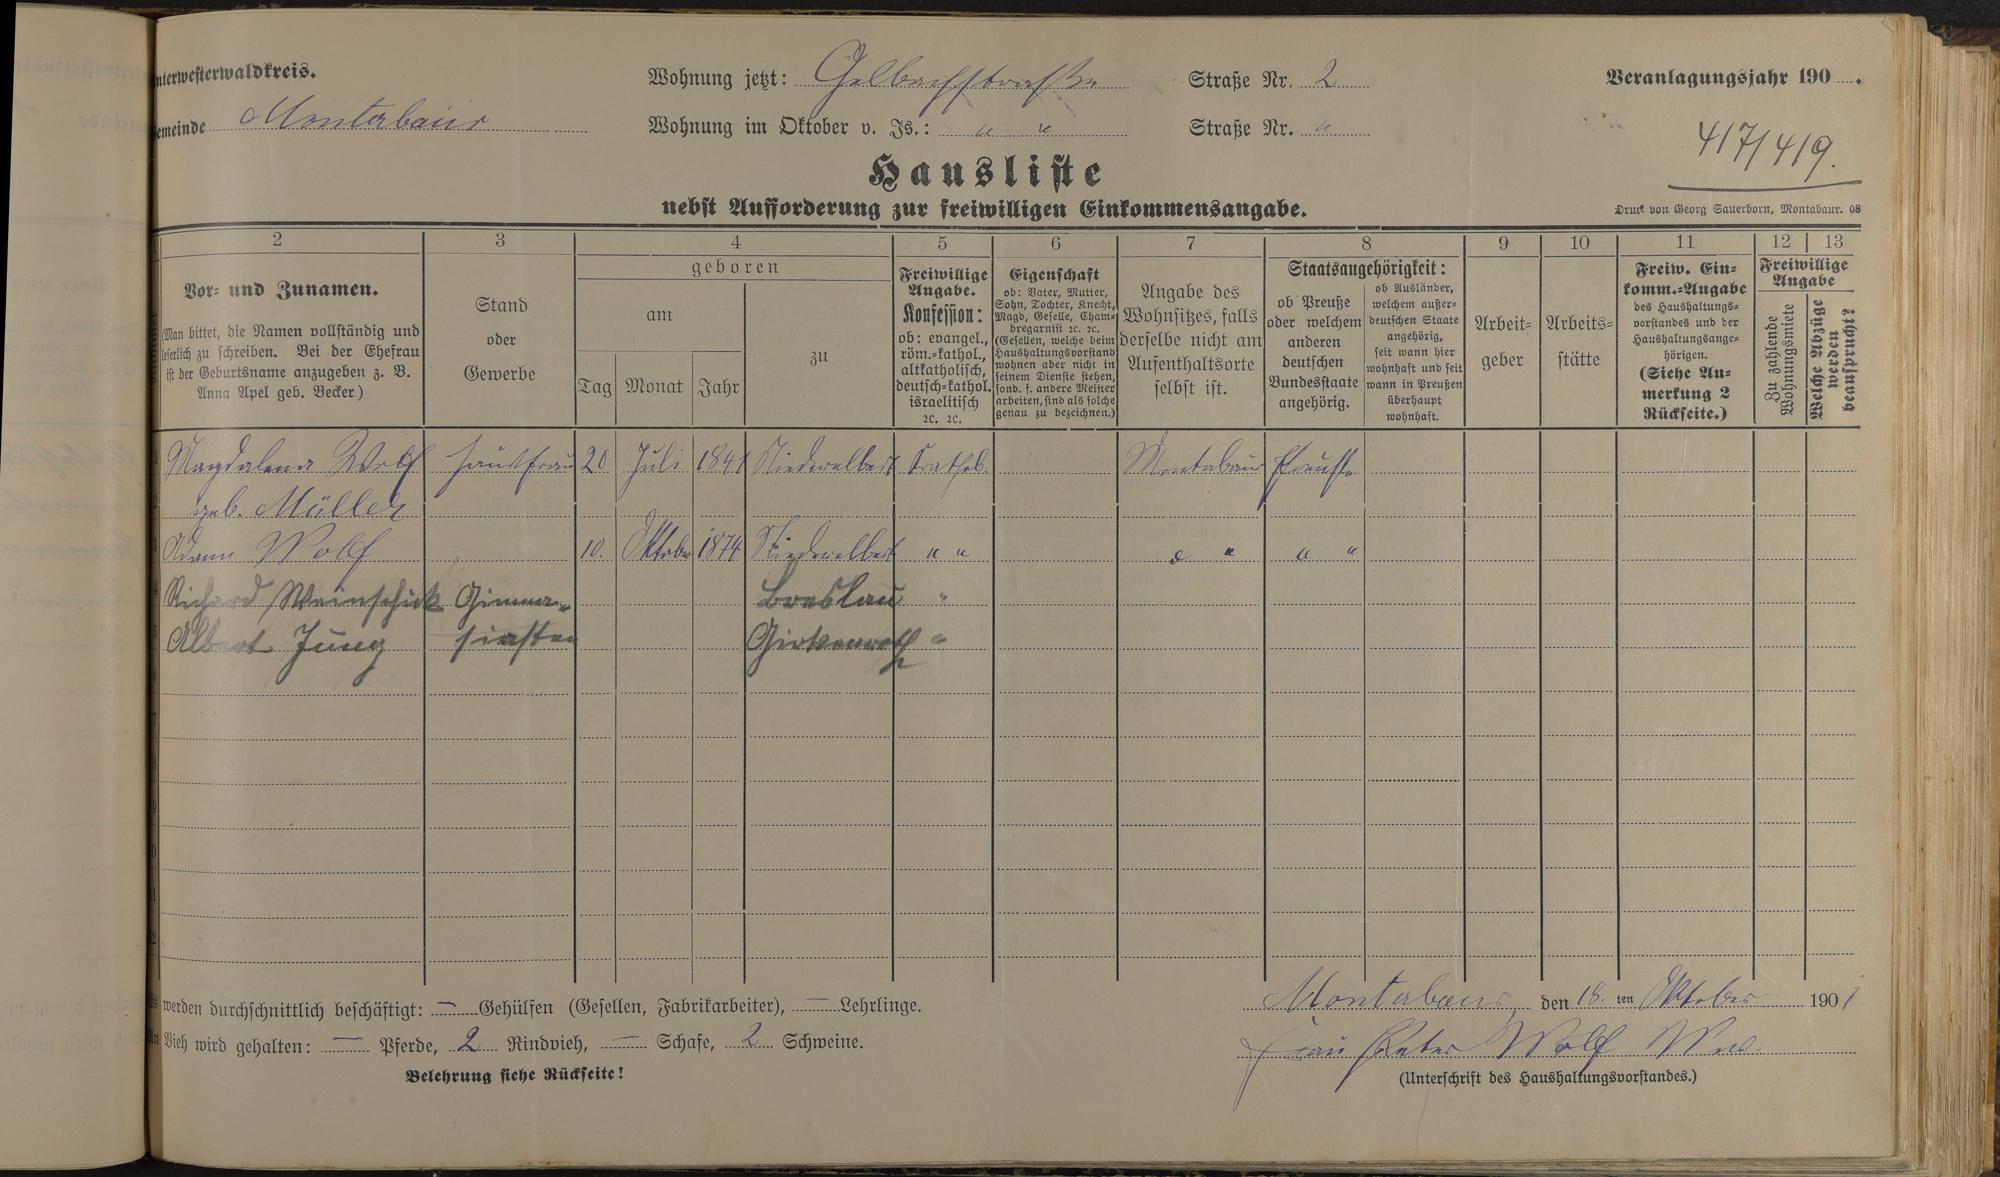 nterwesterwaldkreis.
Wohnung jetzt: Gelbachstraße Straße Nr. 2
Veranlagungsjahr 190 .
emeinde Montabaur
Wohnung im Oktober v. Js.: " " Straße Nr. "
417/419.
Hausliste
nebst Aufforderung zur freiwilligen Einkommensangabe.
Druck von Georg Sauerborn, Montabaur. 08
2 3 4 5 6 7 8 9 10 11 12 13
Vor- und Zunamen.
(Man bittet, die Namen vollständig und
leserlich zu schreiben. Bei der Ehefrau
ist der Geburtsname anzugeben z. B.
Anna Apel geb. Becker.)
Stand
oder
Gewerbe
geboren
am
Tag Monat Jahr
zu
Freiwillige
Angabe.
Konfession:
ob: evangel.,
röm.-kathol.,
altkatholisch,
deutsch-kathol.
israelitisch
2c. 2c.
Eigenschaft
ob: Vater, Mutter,
Sohn, Tochter, Knecht,
Magd, Geselle, Cham-
bregarnist 2c. 2c.
(Gesellen, welche beim
Haushaltungsvorstand
wohnen aber nicht in
seinem Dienste stehen,
sond. f. andere Meister
arbeiten, sind als solche
genau zu bezeichnen.)
Angabe des
Wohnsitzes, falls
derselbe nicht am
Aufenthaltsorte
selbst ist.
Staatsangehörigkeit:
ob Preuße
oder welchem
anderen
deutschen
Bundesstaate
angehörig.
ob Ausländer,
welchem außer-
deutschen Staate
angehörig,
seit wann hier
wohnhaft und seit
wann in Preußen
überhaupt
wohnhaft.
Arbeit-
geber
Arbeits-
stätte
Freiw. Ein-
komm.-Angabe
des Haushaltungs-
vorstandes und der
Haushaltungsange-
hörigen.
(Siehe An-
merkung 2
Rückseite.)
Freiwillige
Angabe
Zu zahlende
Wohnungsmiete
Welche Abzüge
werden
beansprucht?
Magdalena Wolf Hausfrau 20 Juli 1841 Niederelbert Kathol. Montabaur Preuße
geb. Müller
Adam Wolf 10. Oktober 1874 Niederelbert " " " " " "
Richard Weinschick Gimna- Breslau "
Albert Jung siasten Girkenroth "
werden durchschnittlich beschäftigt: — Gehülfen (Gesellen, Fabrikarbeiter), — Lehrlinge.
Montabaur, den 18. ten Oktober 190
Vieh wird gehalten: — Pferde, 2 Rindvieh, — Schafe, 2 Schweine.
Frau Peter Wolf Ww.
Belehrung siehe Rückseite!
(Unterschrift des Haushaltungsvorstandes.)